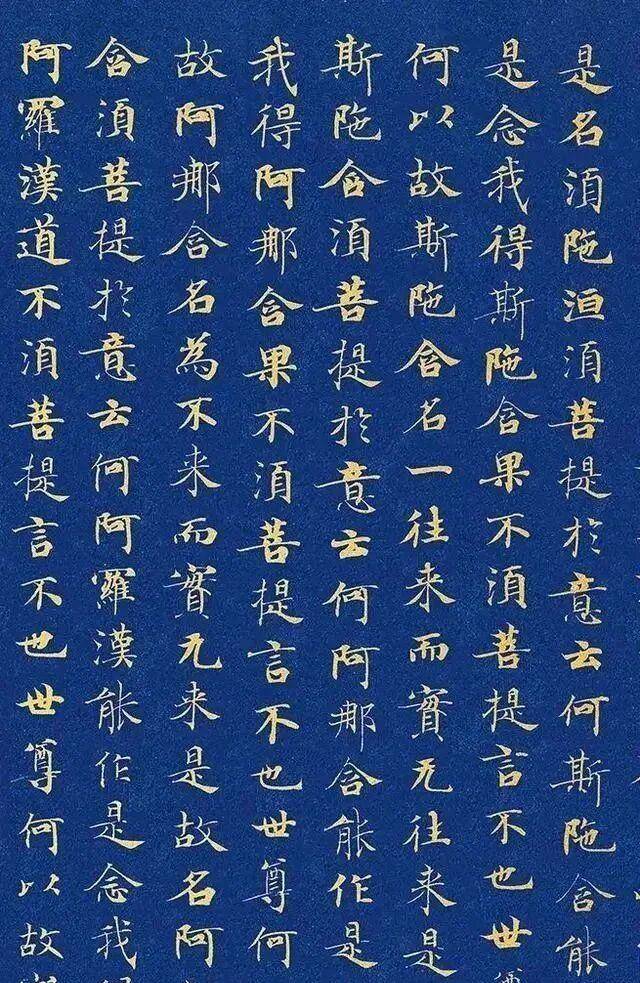 是名湏陁洹湏菩提扵意云何斯陁含能
是念我得斯陁含果不湏菩提言不也世
何以故斯陁含名一往来而實无往来是
斯陁含湏菩提扵意云何阿那含能作是
我得阿那含果不湏菩提言不也世尊何
故阿那含名為不来而實无来是故名阿
含湏菩提扵意云何阿羅漢能作是念我
阿羅漢道不湏菩提言不也世尊何以故